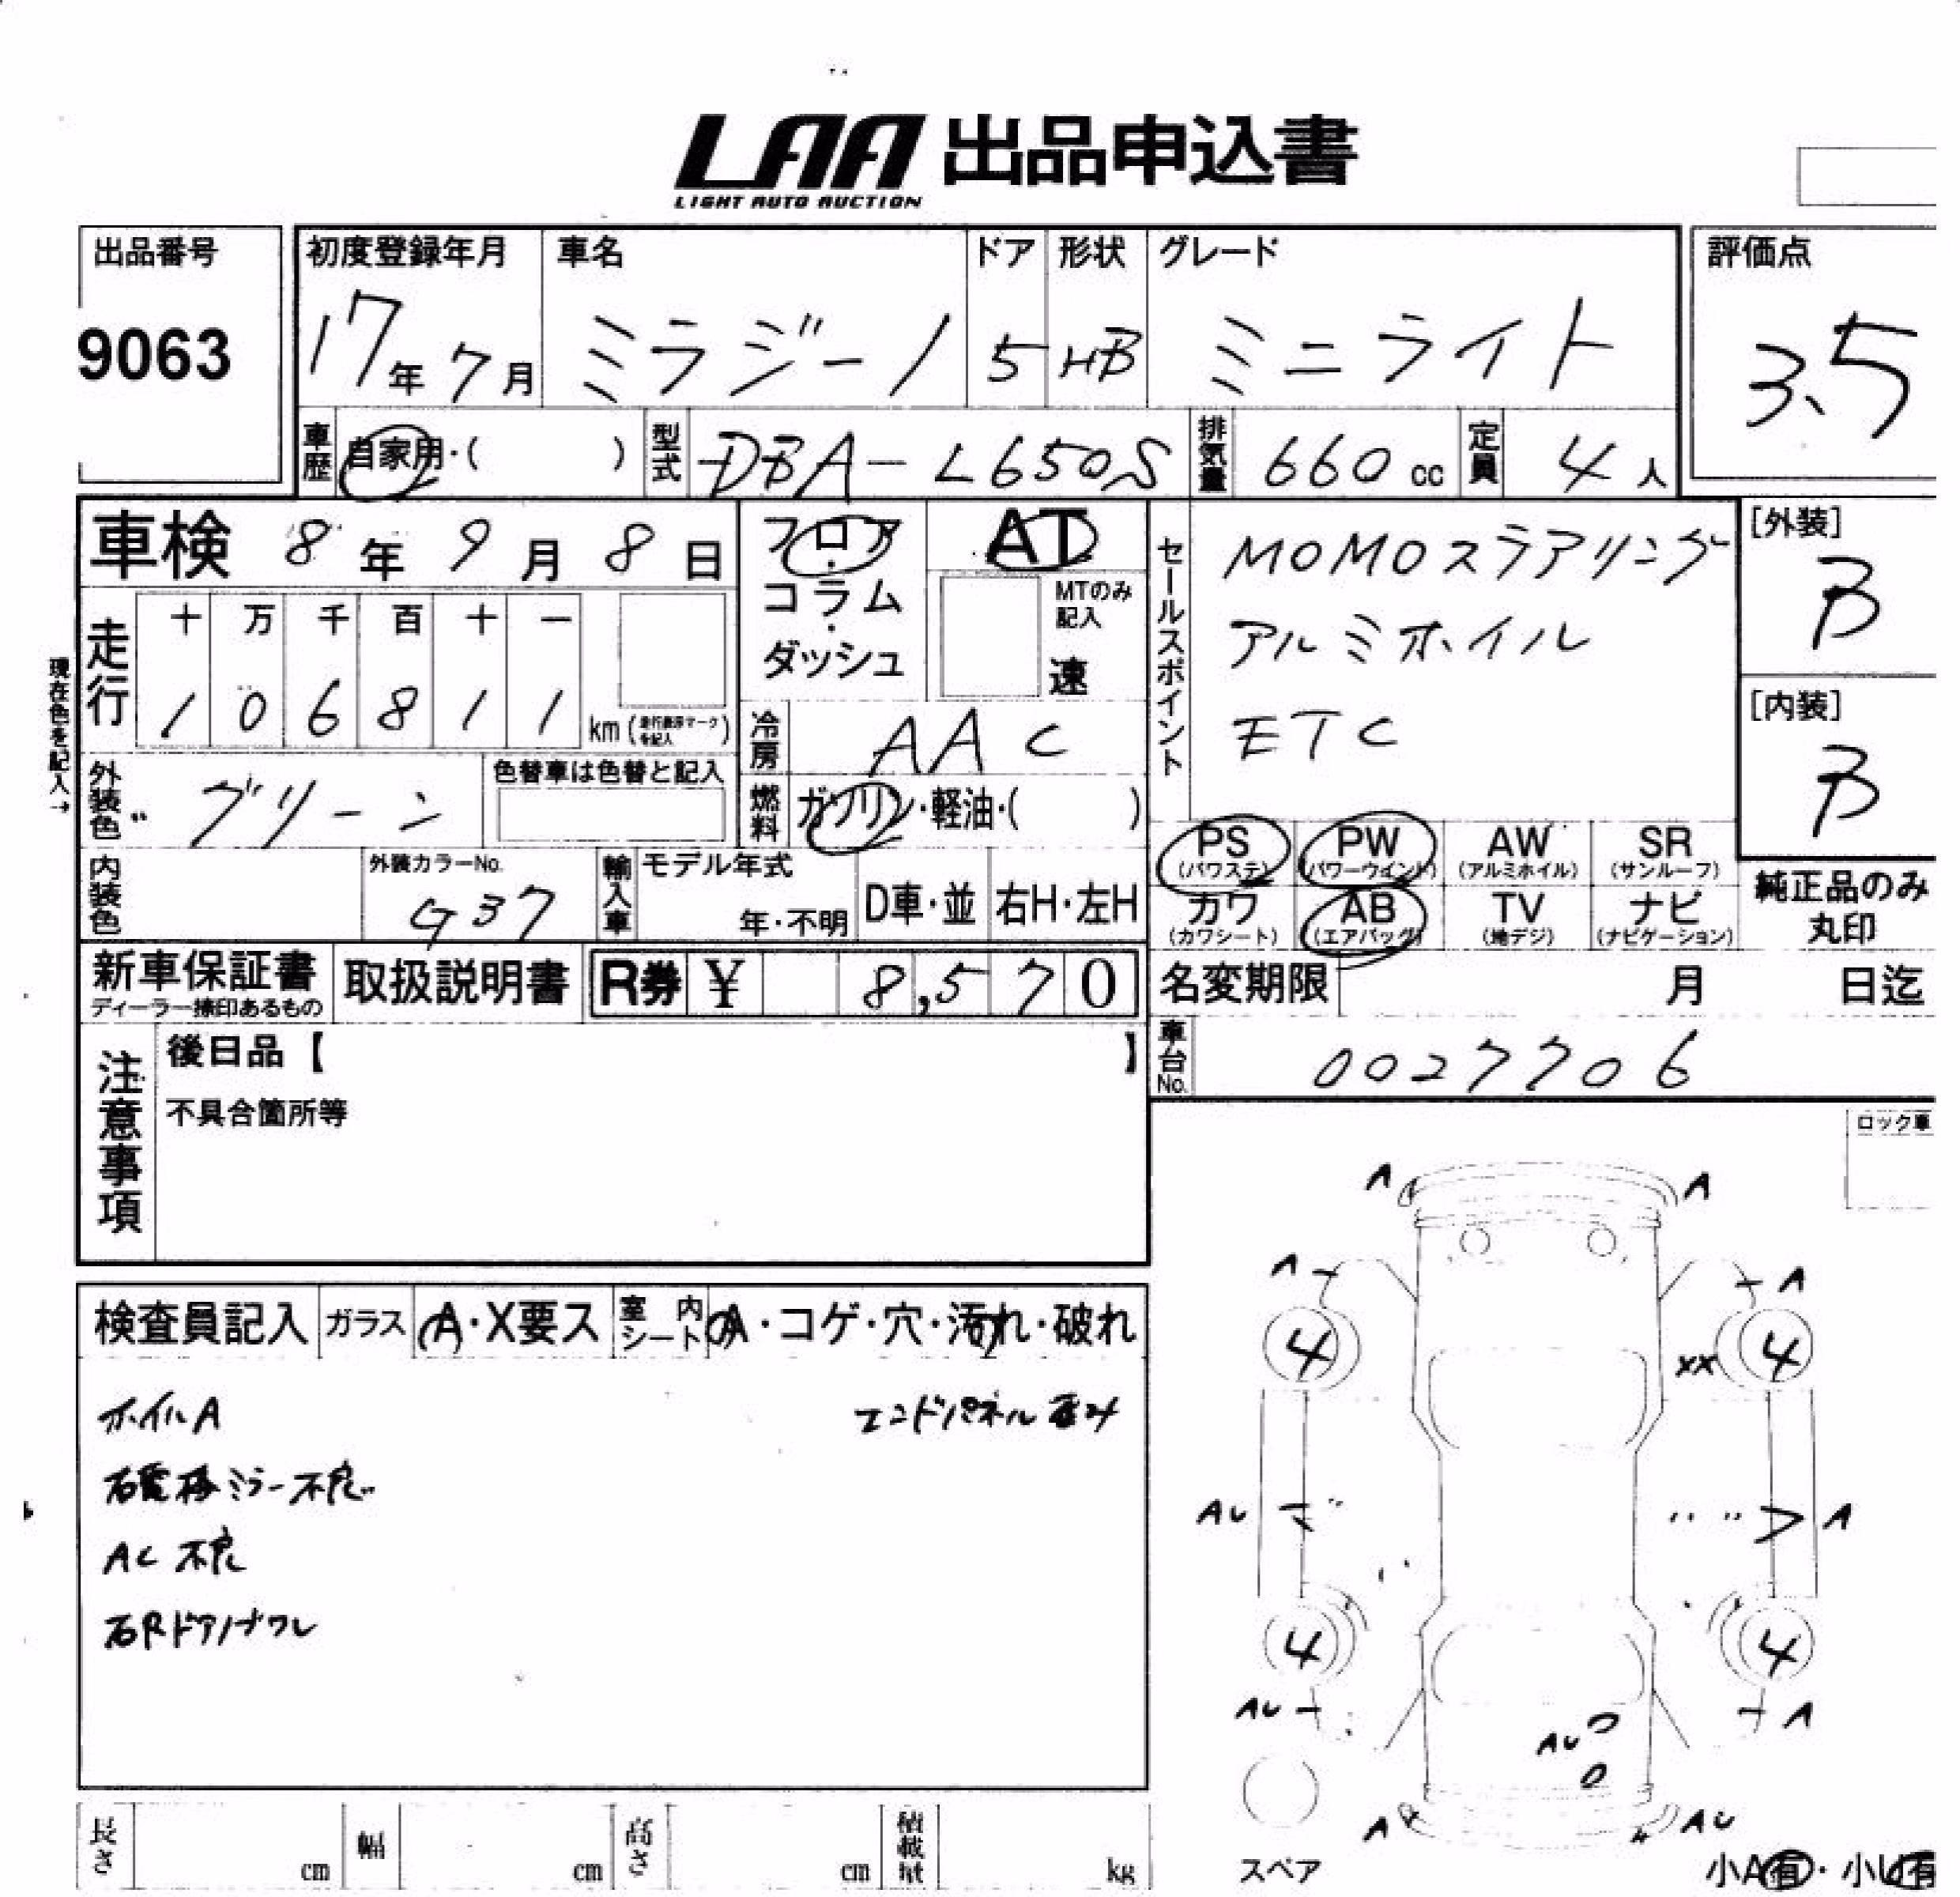 LAA 出品申込書
LIGHT AUTO AUCTION
出品番号 初度登録年月 車名 ドア 形状 グレード 評価点
9063 17年7月 ミラジーノ 5 HB ミニライト 3.5
車歴 自家用・( ) 型式 DBA-L650S 排気量 660cc 定員 4人
車検 8年9月8日 フロア・コラム・ダッシュ AT
MTのみ記入 速
セールスポイント MOMOステアリング
アルミホイル
ETC
[外装] B
[内装] B
現在色を記入→
走行 十 万 千 百 十 一
1 0 6 8 1 1 km
冷房 AAC
外装色 グリーン 色替車は色替と記入 燃料 ガソリン・軽油・( )
内装色 外装カラーNo. G37 輸入車 モデル年式 年・不明 D車・並 右H・左H
PS (パワステ) PW (パワーウインド) AW (アルミホイル) SR (サンルーフ)
カワ (カワシート) AB (エアバッグ) TV (地デジ) ナビ (ナビゲーション)
純正品のみ丸印
新車保証書 ディーラー捺印あるもの 取扱説明書 R券 ¥ 8,570 名変期限 月 日迄
車台No. 0027706
注意事項 後日品【 】
不具合箇所等
ロック車
検査員記入 ガラス A・X要ス 室内シート A・コゲ・穴・汚れ・破れ
ホイルA エンドパネル歪み
右電格ミラー不良
AC不良
右Rドアノブワレ
A A
A A
4 4
XX
AU A
4 4
AU A
AU
A AU
スペア
小A有・小U有
長さ cm 幅 cm 高さ cm 積載量 kg